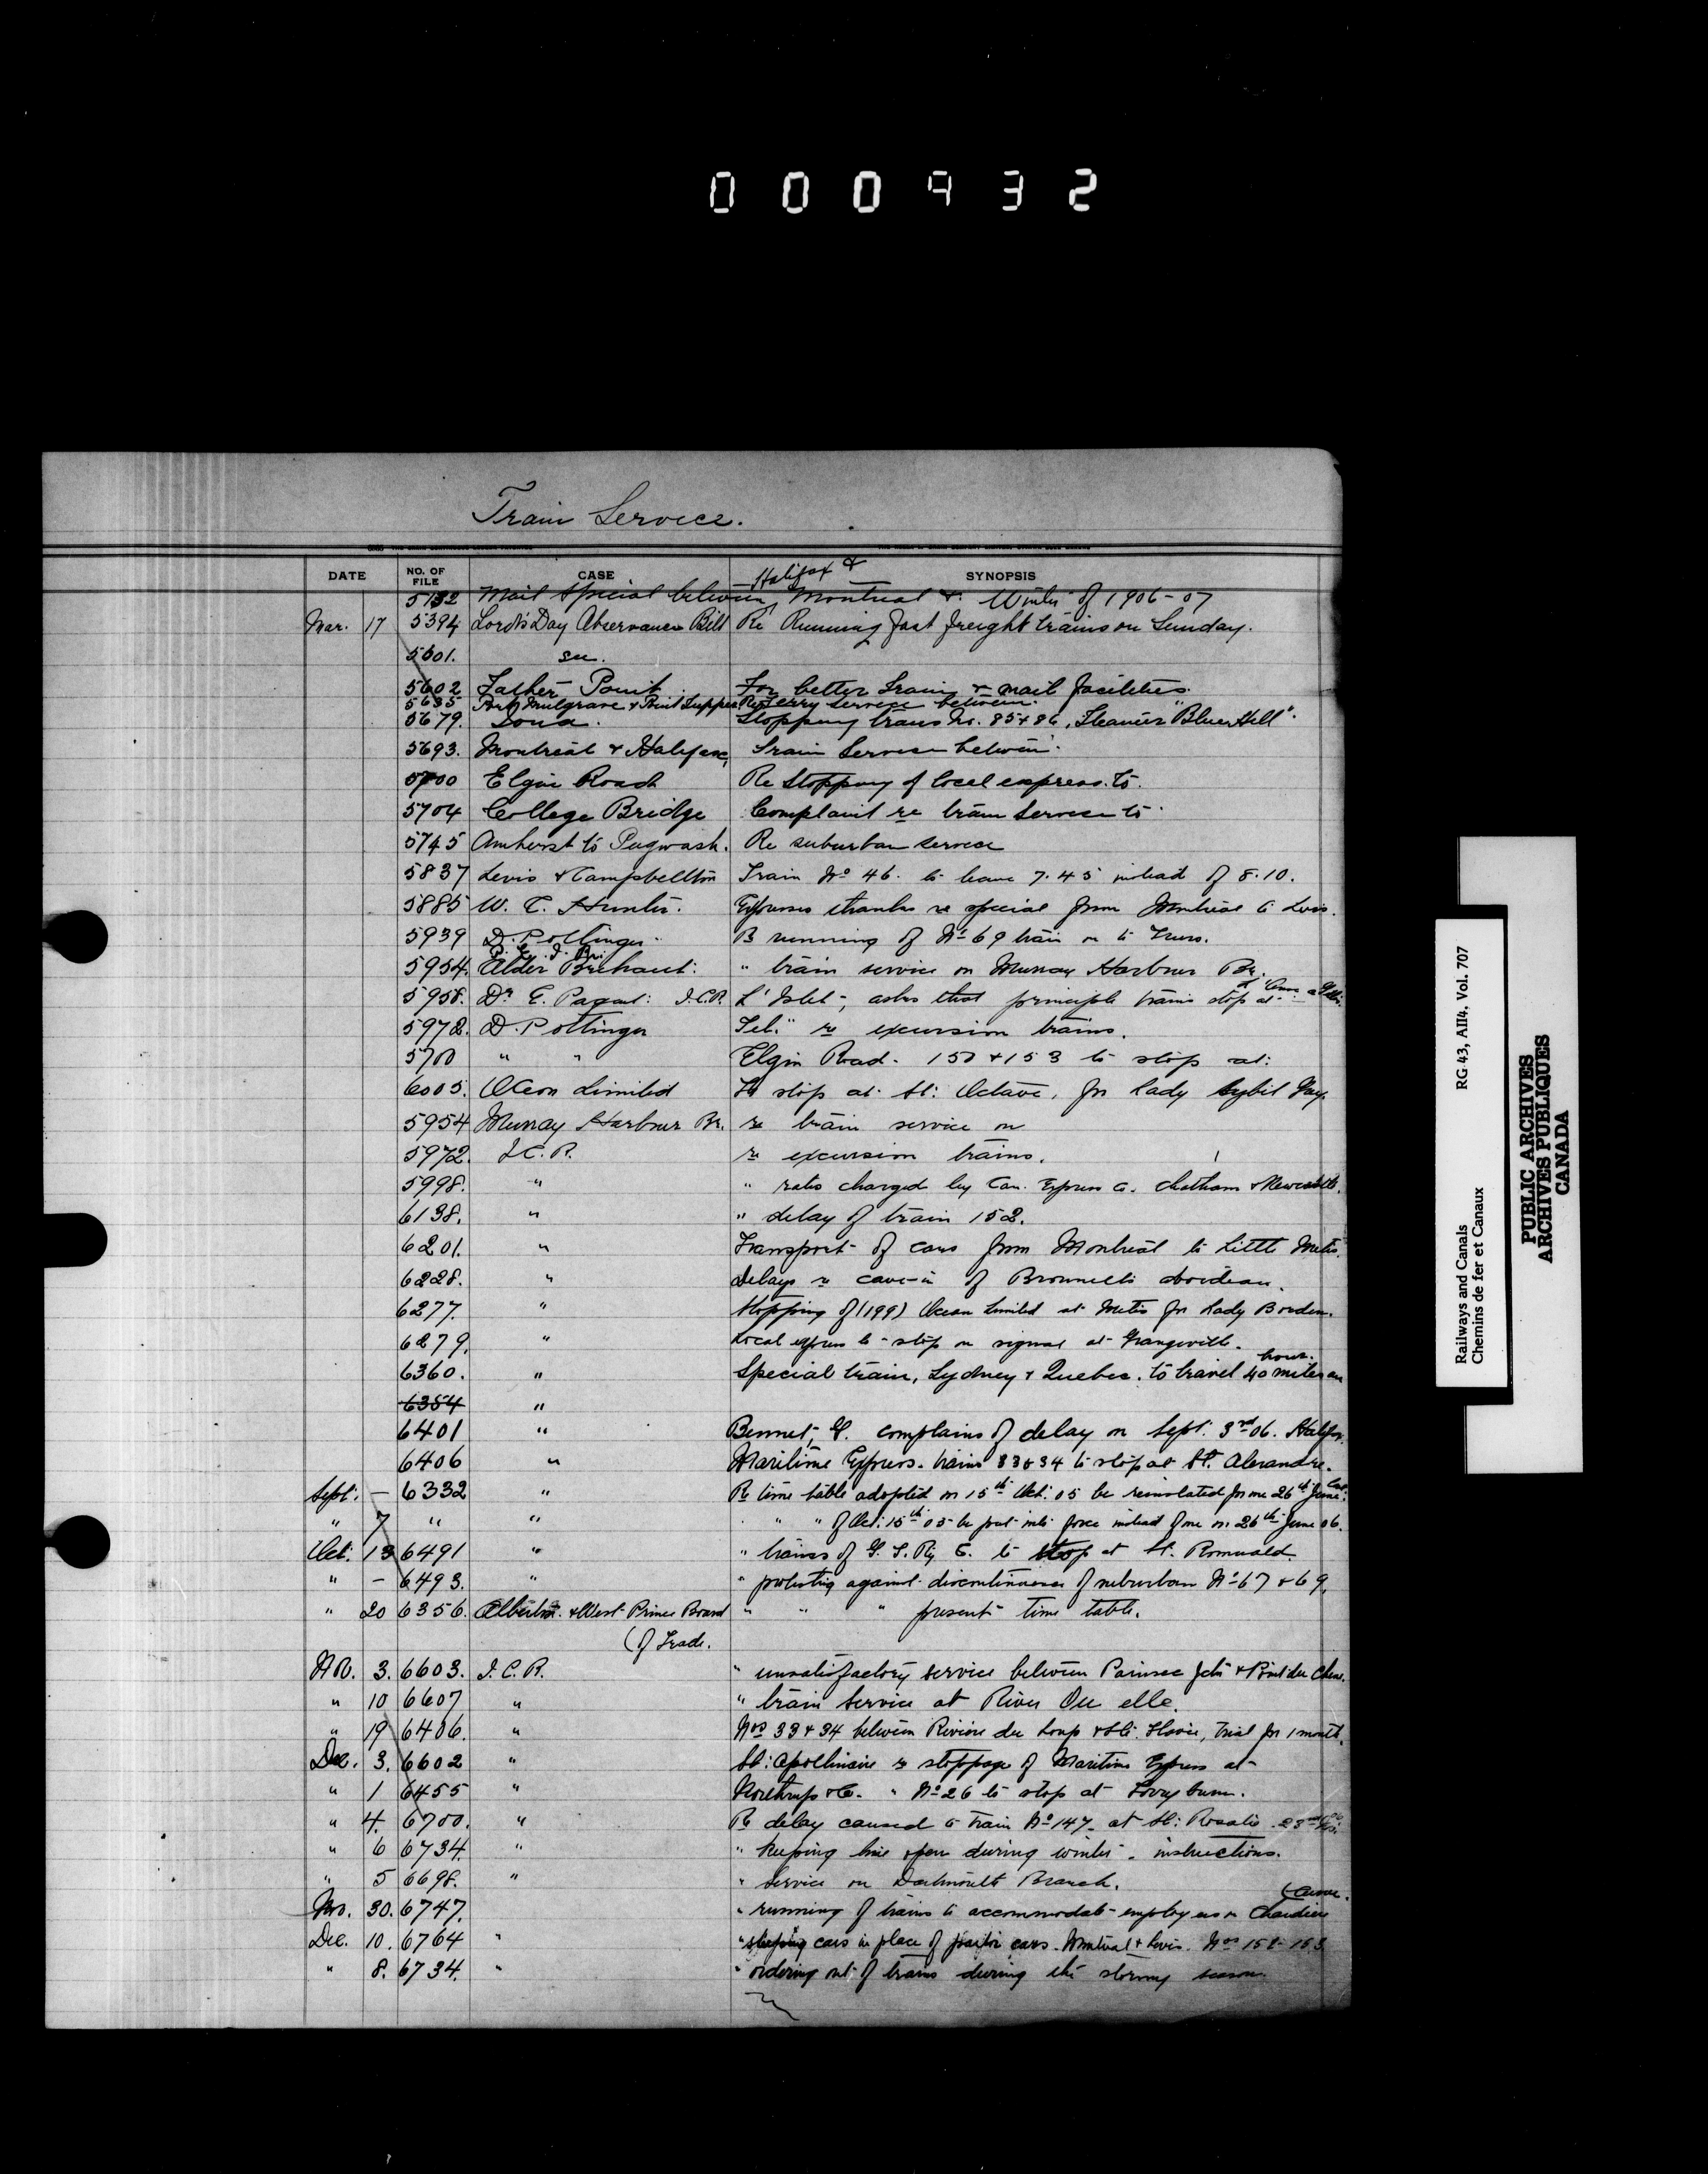 000932
Train Service.
DATE NO. OF FILE CASE SYNOPSIS
Halifax &
5132 Mail Special between Montreal &. Winter of 1906-07
Mar. 17 5394 Lord's Day Observance Bill Re Running fast freight trains on Sunday.
5501. see.
5602 Father Point For better train & mail facilities.
5635 Port Mulgrave & Point Tupper Re Ferry Service between.
5679. Iona. Stopping trains No. 85 & 86, Steamer "Blue Hill".
5693. Montreal & Halifax, Train Service between.
5700 Elgin Road Re Stopping of local express to.
5704 College Bridge Complaint re train service to.
5745 Amherst to Pugwash. Re suburban service
5837 Levis & Campbellton Train No 46. to leave 7.45 instead of 8.10.
5885 W. C. Hunter. Expresses thanks re special from Montreal to Levis.
5939 D. Pottinger. R running of No 69 train on to Truro.
P. E. I. Ry.
5954. Alder Brehaut: " train service on Murray Harbour Br.
5958. Dr E. Paquet: I.C.R. L'Islet, asks that principle trains stop at
5972. D. Pottinger Tel. re excursion trains.
5700 " " Elgin Road. 150 & 153 to stop at:
6005. Ocean Limited To stop at St: Octave, for Lady Sybil Grey.
5954 Murray Harbour Br. re train service on
5972. I.C.R. re excursion trains.
5998. " " rates charged by Can. Express Co. Chatham & Newcastle.
6138. " " delay of train 152.
6201. " Transport of cars from Montreal to Little Metis.
6228. " Delays re cave-in of
6277. " Stopping of (199) Ocean Limited at Metis for Lady Borden.
6279. " Local express to stop on signal at Grangeville.
hour.
6360. " Special train, Sydney & Quebec. to travel 40 miles an
6384 "
6401 " Bennet, G. complains of delay on Sept. 3rd 06. Halifax.
6406 " Maritime Express. trains 33 & 34 to stop at St. Alexandre.
Sept: - 6332 " Re time table adopted on 15th Oct. 05 be reinstated for one 26th June
" 7 " " " " of Oct: 15th 05 be put into force instead of one on 26th June 06.
Oct: 13 6491 " " trains of G. T. Ry Co. to stop at St. Romuald.
" - 6493. " " protesting against discontinuance of suburban No 67 & 69.
" 20 6356. Alberton & West Prince Board " " " present time table.
(of Trade.
Nov. 3. 6603. I. C. R. " unsatisfactory service between Painsec Jctn & Point du Chene.
" 10 6607 " " train service at River Ouelle.
" 19 6406. " Nos 33 & 34 between Riviere du Loup & Ste. Flavie, trial for 1 month.
Dec. 3. 6602 " St: Apollinaire re stoppage of Maritime Express at
" 1 6455 " Northrup & Co. " No 26 to stop at
" 4. 6700. " Re delay caused to train No 147. at St: Rosalie 23rd
" 6 6734. " " keeping line open during winter. instructions.
" 5 6698. " " service on Dartmouth Branch.
Nov. 30. 6747. " running of trains to accommodate employees on Chaudiere
(Curve.
Dec. 10. 6764 " " sleeping cars in place of parlor cars. Montreal & Levis. Nos 152-153
" 8. 6734. " " ordering out of trains during the stormy season.
Railways and Canals RG 43, AII4, Vol. 707
Chemins de fer et Canaux
PUBLIC ARCHIVES
ARCHIVES PUBLIQUES
CANADA